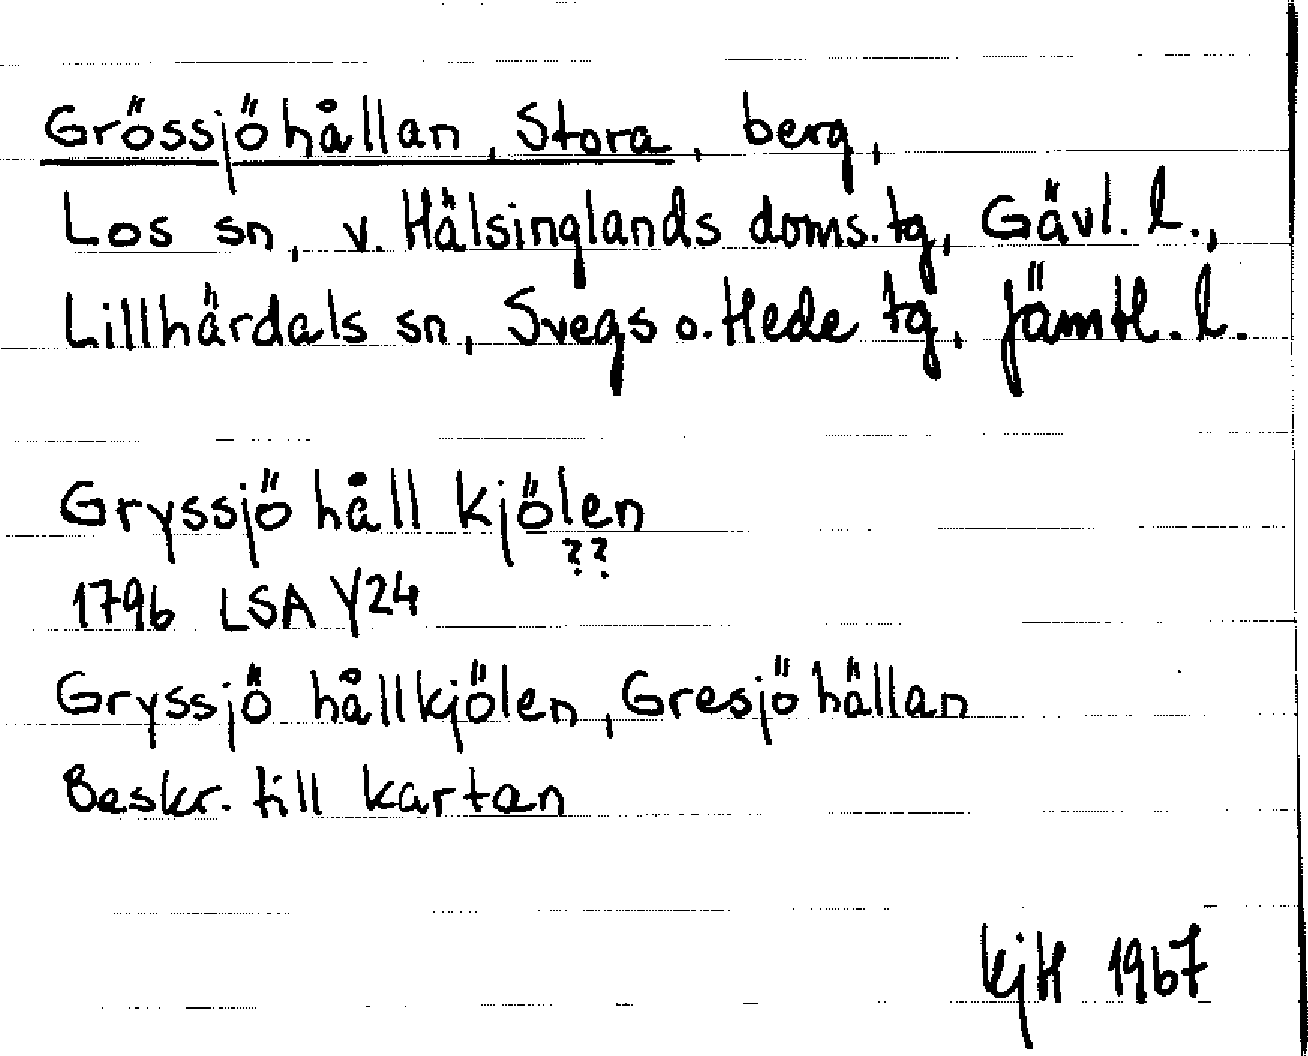 Grössjöhållan, Stora, berg,
Los sn, v. Hälsinglands doms.tg, Gävl. l.,
Lillhärdals sn, Svegs o. Hede tg, Jämtl. l.
Gryssjö håll kjölen
??
1796 LSA Y24
Gryssjö hållkjölen, Gresjöhällan
Beskr. till kartan
KjH 1967